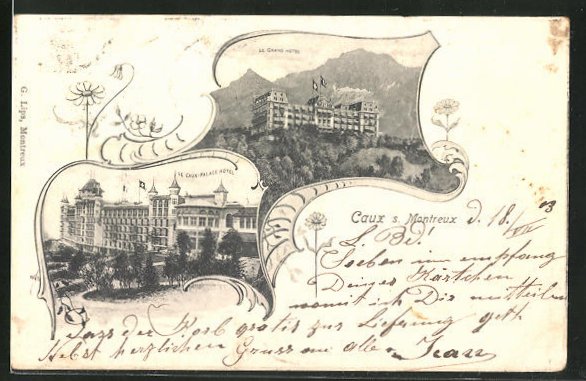 LE GRAND HOTEL
G. Lips, Montreux
LE CAUX-PALACE HOTEL
Caux s. Montreux d. 18./VII 03
L. Bé!
Soeben im empfang
Deines Kärtchen
womit ich Dir mitteilen
dass der Korb gratis zur Lieferung geht
Nebst herzlichen Gruss an alle Jean